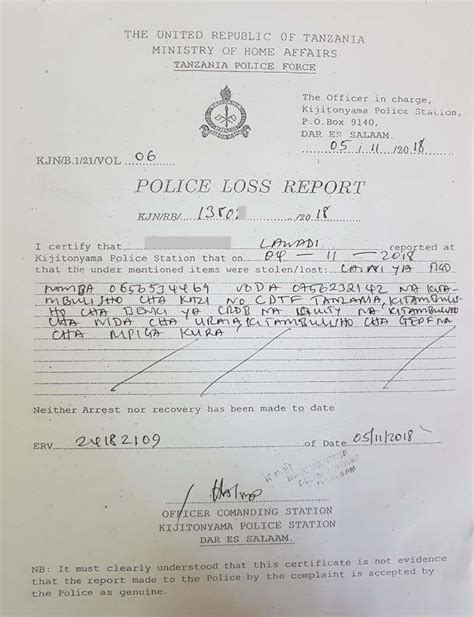 THE UNITED REPUBLIC OF TANZANIA
MINISTRY OF HOME AFFAIRS
TANZANIA POLICE FORCE
The Officer in charge,
Kijitonyama Police Station,
P.O.Box 9140,
DAR ES SALAAM.
05/11/2018
KJN/B.1/21/VOL 06
POLICE LOSS REPORT
KJN/RB/ 1380 /2018
I certify that LAWADI reported at
Kijitonyama Police Station that on 04-11-2018
that the under mentioned items were stolen/lost: LAINI YA TIGO
NAMBA 0656534469 VODA 0756238142 NA KITA-
MBULISHO CHA KAZI NO CDTF TANZANIA, KITAMBULIS-
HO CHA BENKI YA CRDB NA EQUITY NA KITAMBULISHO
CHA NIDA CHA URAIA, KITAMBULISHO CHA GEPF NA
CHA MPIGA KURA
Neither Arrest nor recovery has been made to date
ERV 24182109 of Date 05/11/2018
OFFICER COMANDING STATION
KIJITONYAMA POLICE STATION
DAR ES SALAAM.
NB: It must clearly understood that this certificate is not evidence
that the report made to the Police by the complaint is accepted by
the Police as genuine.